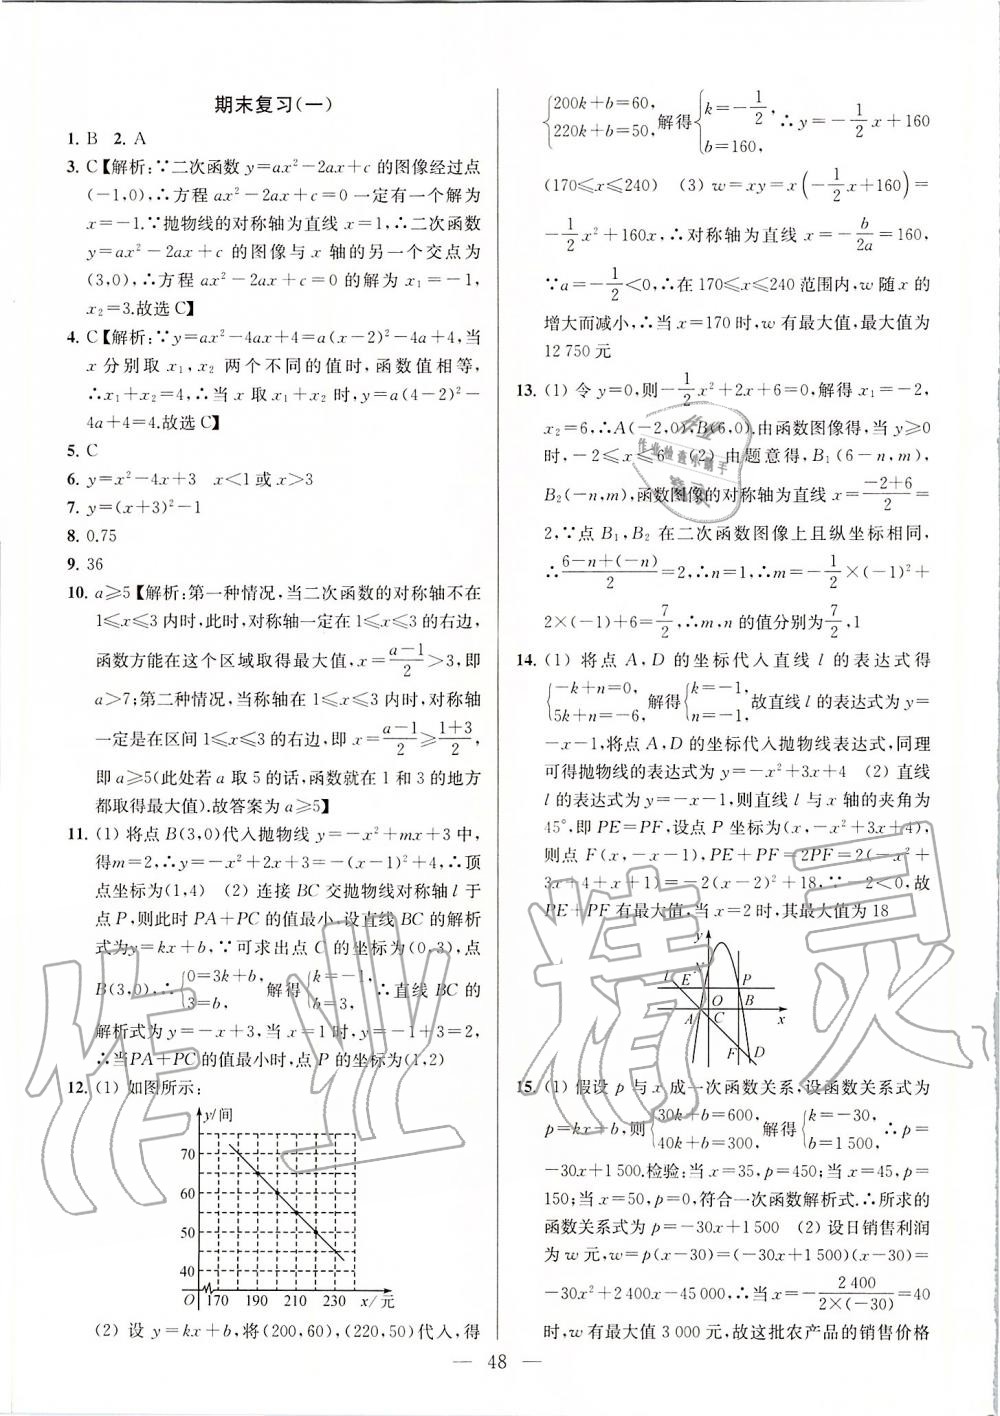 期末复习(一)
1. B  2. A
3. C【解析:∵二次函数 y=ax²-2ax+c 的图像经过点
(-1,0),∴方程 ax²-2ax+c=0 一定有一个解为
x=-1.∵抛物线的对称轴为直线 x=1,∴二次函数
y=ax²-2ax+c 的图像与 x 轴的另一个交点为
(3,0),∴方程 ax²-2ax+c=0 的解为 x₁=-1,
x₂=3.故选C】
4. C【解析:∵y=ax²-4ax+4=a(x-2)²-4a+4,当
x 分别取 x₁,x₂ 两个不同的值时,函数值相等,
∴x₁+x₂=4,∴当 x 取 x₁+x₂ 时,y=a(4-2)²-
4a+4=4.故选C】
5. C
6. y=x²-4x+3  x<1或x>3
7. y=(x+3)²-1
8. 0.75
9. 36
10. a≥5【解析:第一种情况,当二次函数的对称轴不在
1≤x≤3内时,此时,对称轴一定在1≤x≤3的右边,
函数方能在这个区域取得最大值,x=(a-1)/2>3,即
a>7;第二种情况,当对称轴在1≤x≤3内时,对称轴
一定是在区间1≤x≤3的右边,即 x=(a-1)/2≥(1+3)/2,
即 a≥5(此处若 a 取 5 的话,函数就在 1 和 3 的地方
都取得最大值).故答案为 a≥5】
11. (1) 将点 B(3,0)代入抛物线 y=-x²+mx+3 中,
得m=2,∴y=-x²+2x+3=-(x-1)²+4,∴顶
点坐标为(1,4)  (2) 连接 BC 交抛物线对称轴 l 于
点 P,则此时 PA+PC 的值最小.设直线 BC 的解析
式为y=kx+b,∵可求出点 C 的坐标为(0,3),点
B(3,0),∴{0=3k+b, 3=b, 解得{k=-1, b=3, ∴直线 BC 的
解析式为 y=-x+3,当 x=1时,y=-1+3=2,
∴当PA+PC的值最小时,点 P 的坐标为(1,2)
12. (1) 如图所示:
y/间
70
60
50
40
O 170 190 210 230 x/元
(2) 设 y=kx+b,将(200,60),(220,50)代入,得
{200k+b=60, 220k+b=50, 解得{k=-1/2, b=160, ∴y=-1/2x+160
(170≤x≤240)  (3) w=xy=x(-1/2x+160)=
-1/2x²+160x,∴对称轴为直线 x=-b/2a=160,
∵a=-1/2<0,∴在170≤x≤240范围内,w 随 x 的
增大而减小,∴当 x=170时,w 有最大值,最大值为
12 750元
13. (1) 令 y=0,则-1/2x²+2x+6=0,解得 x₁=-2,
x₂=6,∴A(-2,0),B(6,0).由函数图像得,当 y≥0
时,-2≤x≤6  (2) 由题意得,B₁(6-n,m),
B₂(-n,m),函数图像的对称轴为直线 x=(-2+6)/2=
2,∵点 B₁,B₂ 在二次函数图像上且纵坐标相同,
∴(6-n+(-n))/2=2,∴n=1,∴m=-1/2×(-1)²+
2×(-1)+6=7/2,∴m,n的值分别为7/2,1
14. (1) 将点 A,D 的坐标代入直线 l 的表达式得
{-k+n=0, 5k+n=-6, 解得{k=-1, n=-1, 故直线 l 的表达式为 y=
-x-1,将点 A,D 的坐标代入抛物线表达式,同理
可得抛物线的表达式为 y=-x²+3x+4  (2) 直线
l 的表达式为 y=-x-1,则直线 l 与 x 轴的夹角为
45°,即 PE=PF,设点 P 坐标为(x,-x²+3x+4),
则点 F(x,-x-1),PE+PF=2PF=2(-x²+
3x+4+x+1)=-2(x-2)²+18,∵-2<0,故
PE+PF 有最大值,当 x=2时,其最大值为18
y
l E P
O B
A C x
F D
15. (1) 假设 p 与 x 成一次函数关系,设函数关系式为
p=kx+b,则{30k+b=600, 40k+b=300, 解得{k=-30, b=1 500, ∴p=
-30x+1 500.检验:当 x=35,p=450;当 x=45,p=
150;当 x=50,p=0,符合一次函数解析式.∴所求的
函数关系式为 p=-30x+1 500  (2) 设日销售利润
为 w 元,w=p(x-30)=(-30x+1 500)(x-30)=
-30x²+2 400x-45 000,∴当 x=-2 400/(2×(-30))=40
时,w 有最大值 3 000 元,故这批农产品的销售价格
— 48 —
作业精灵
作业
作业检查小帮手